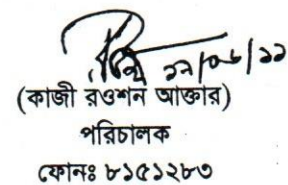 ২২/০৬/১১
(কাজী রওশন আক্তার)
পরিচালক
ফোনঃ ৮১৫১২৮৩